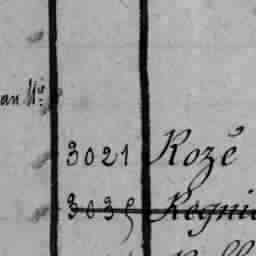 an Nº
3021 Rozé
3035 Regni